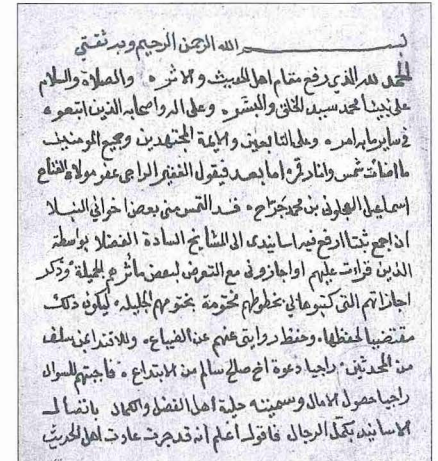 بسم الله الرحمن الرحيم وبه ثقتي
الحمد لله الذي رفع مقام اهل الحديث والاثر والصلاة والسلام
على نبينا محمد سيد الخلق والبشر وعلى اله واصحابه الذين اتبعوه
في ساير ما به امر وعلى التابعين والايمة المجتهدين وجميع المومنين
ما اضات شمس وانار قمر اما بعد فيقول الفقير الراجي عفو مولاه الفتاح
اسماعيل العجلوني بن محمد جراح قد التمس مني بعض اخواني النبلا
ان اجمع ثبتا ارفع فيه اسانيدي الى المشايخ السادة الفضلا بواسطة
الذين قرات عليهم او اجازوني مع التعرض لبعض ماثرهم الجميلة وذكر
اجازاتهم التي كتبوها لي بخطوطهم مختومة بختومهم الجليلة ليكون ذلك
مقتضيا لحفظها وحفظ روايتي عنهم عن الضياع وللاقتدا بمن سلف
من المحدثين راجيا دعوة اخ صالح سالم من الابتداع فاجبتهم للسوال
راجيا حصول الامال وسميته حلية اهل الفضل والكمال باتصال
الاسانيد بكمل الرجال فاقول اعلم انه قد جرت عادت اهل الحديث